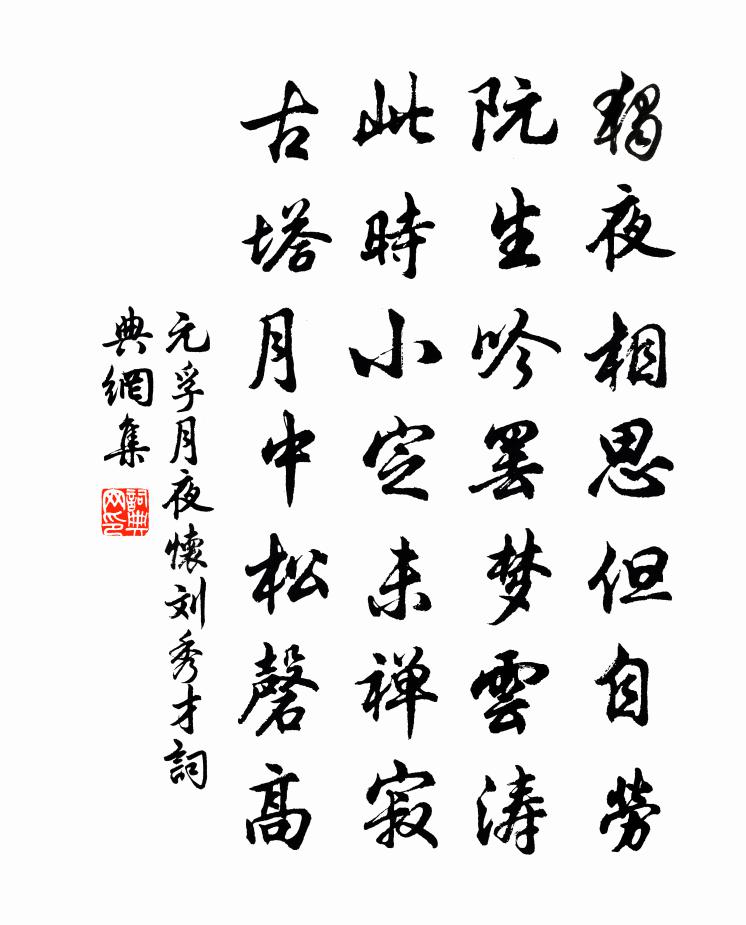 獨夜相思但自勞
阮生吟罷梦雲涛
此時小定未禅寂
古塔月中松磬高
元孚月夜懷刘秀才詞
典網集
詞典
网印